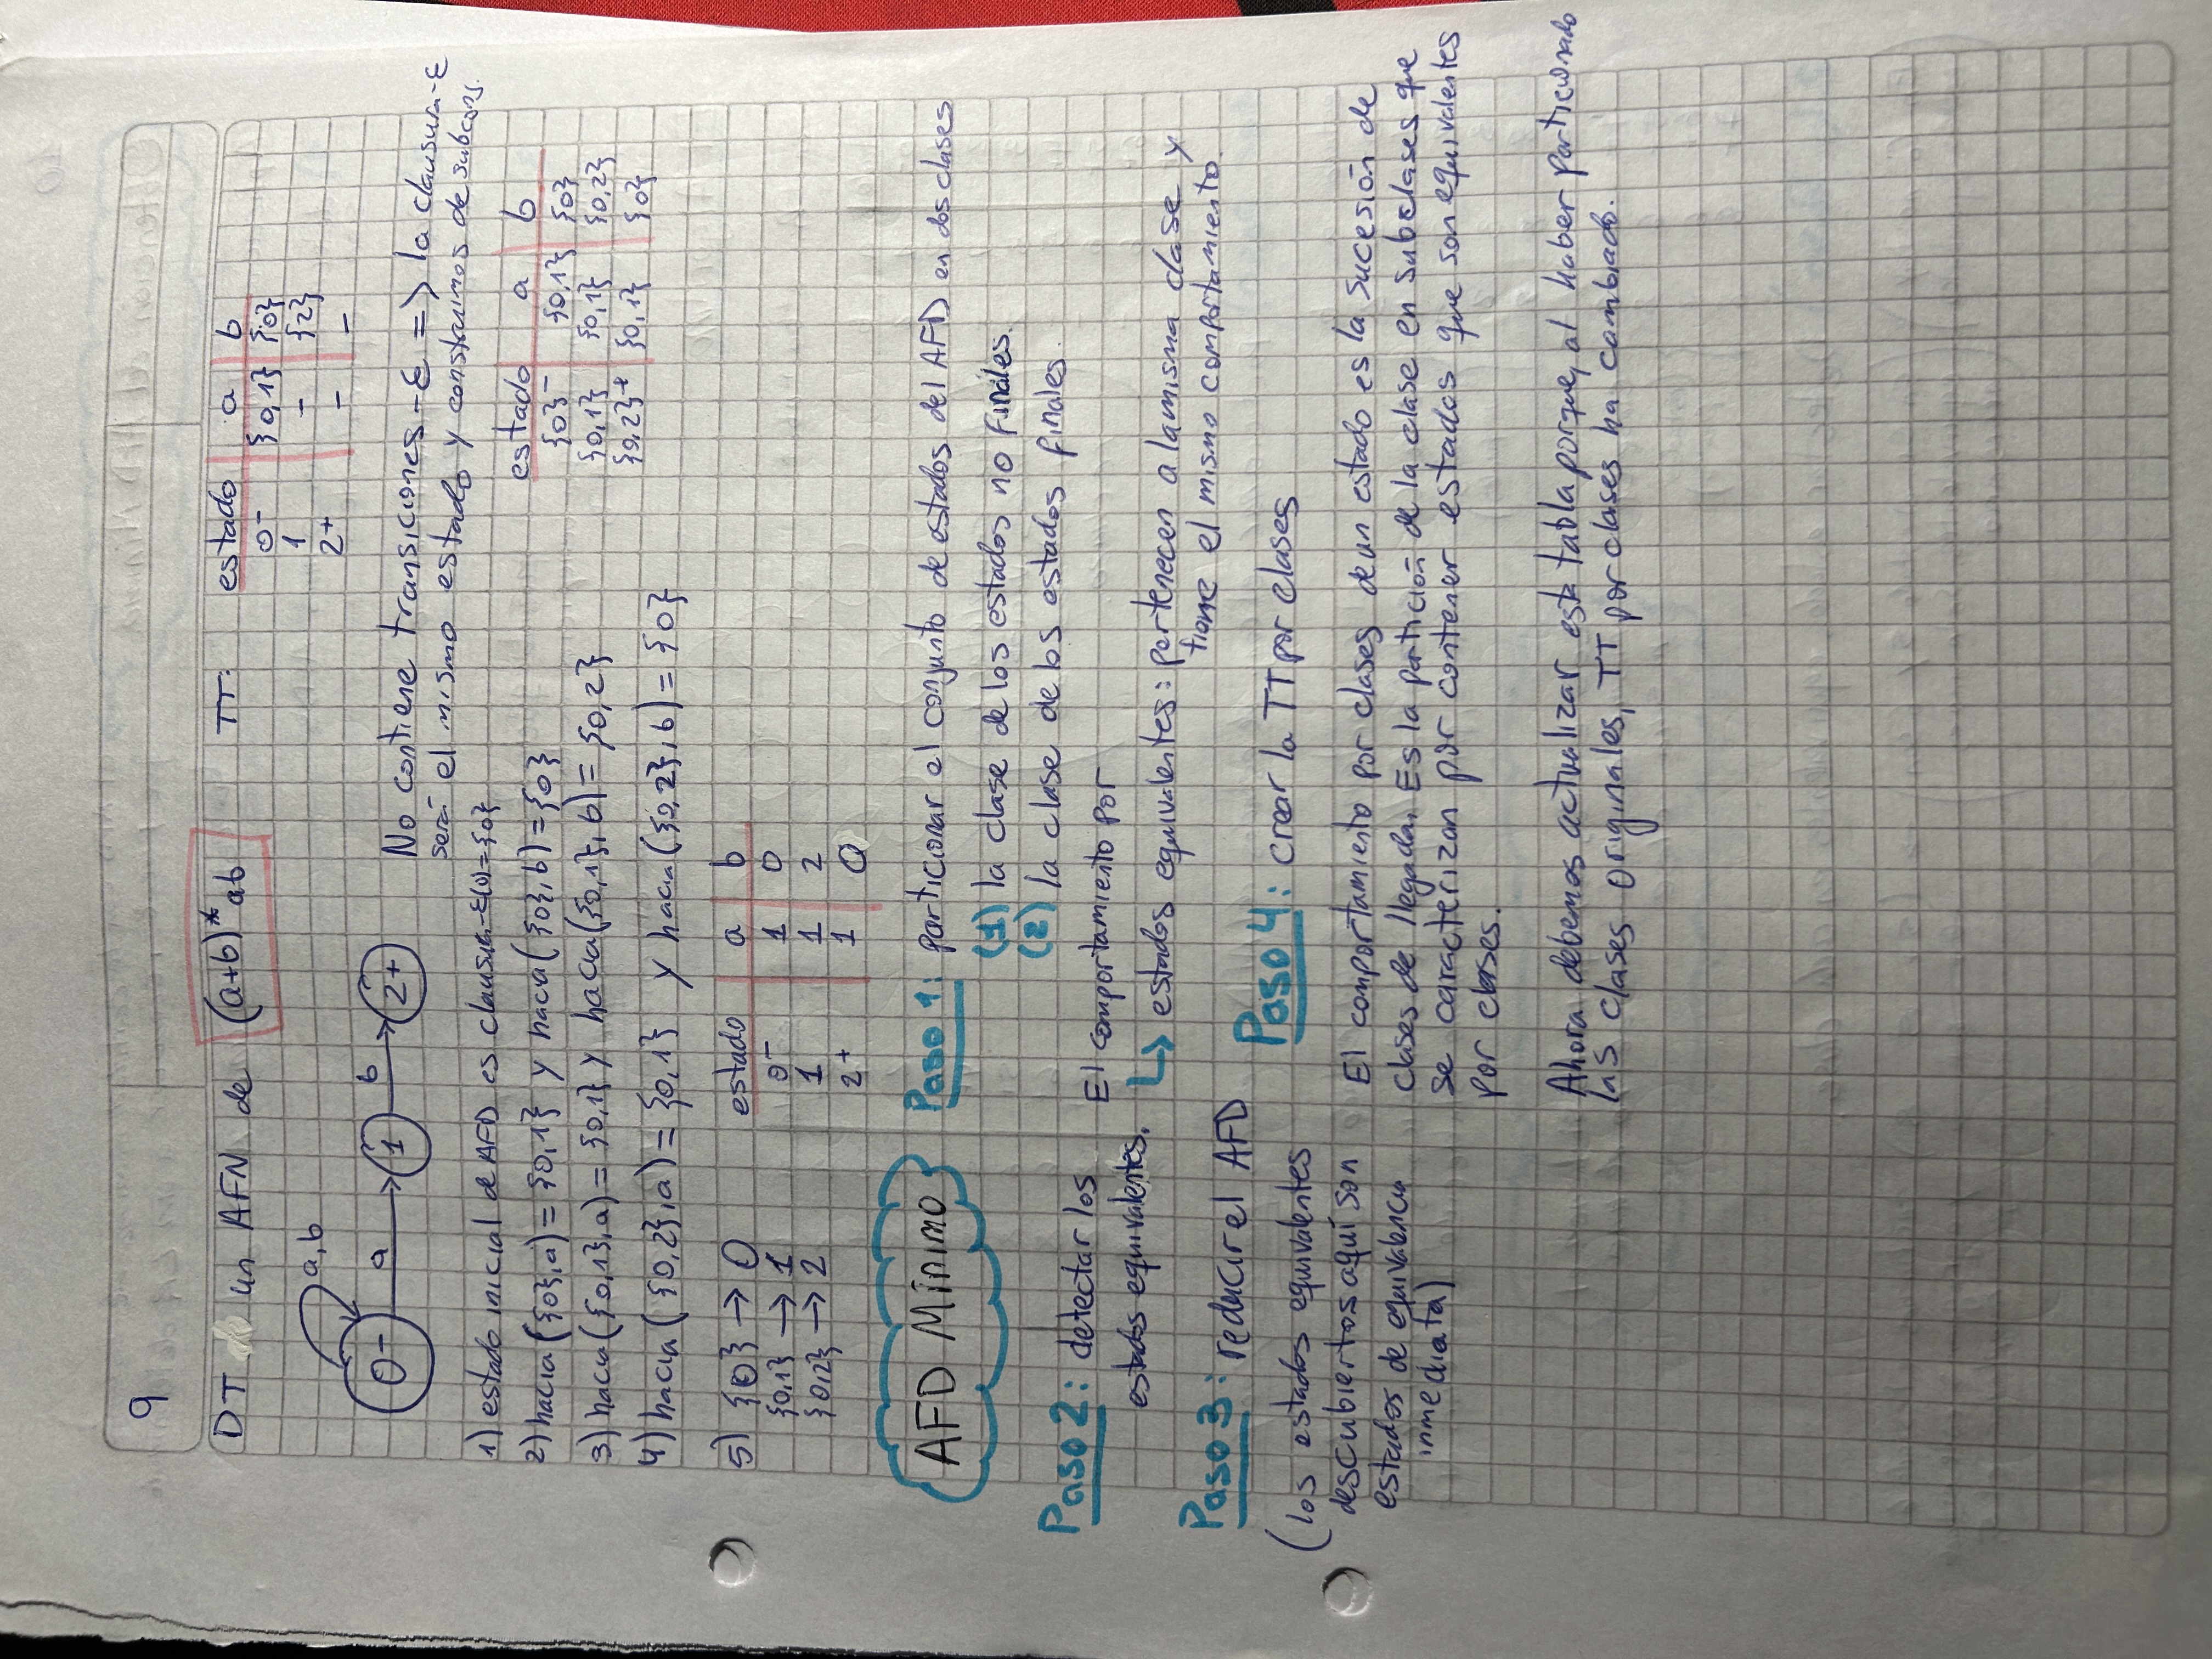 9
DT un AFN de (a+b)*ab
TT: estado a b
0- {0,1} {0}
1 - {2}
2+ - -
a,b
0- a 1 b 2+
No contiene transiciones-ε => la clausura-ε
será el mismo estado y de subconj.
1) estado inicial de AFD es clausura-ε(0)={0}
2) hacia({0},a)= {0,1} y hacia({0},b)={0}
3) hacia({0,1},a)= {0,1} y hacia({0,1},b)= {0,2}
4) hacia({0,2},a)= {0,1} y hacia({0,2},b)= {0}
estado a b
{0}- {0,1} {0}
{0,1} {0,1} {0,2}
{0,2}+ {0,1} {0}
5) {0} → 0
{0,1} → 1
{0,2} → 2
estado a b
0- 1 0
1 1 2
2+ 1 0
AFD Mínimo
Paso 1: particionar el conjunto de estados del AFD en dos clases
(1) la clase de los estados no finales.
(2) la clase de los estados finales.
Paso 2: detectar los
estados equivalentes.
El comportamiento por
↳ estados equivalentes: pertenecen a la misma clase y
tiene el mismo comportamiento.
Paso 3: reducir el AFD
(los estados equivalentes
descubiertos aquí son
estados de equivalencia
inmediata)
Paso 4: crear la TT por clases
El comportamiento por clases de un estado es la sucesión de
clases de llegada. Es la partición de la clase en subclases que
se caracterizan por contener estados que son equivalentes
por clases.
Ahora debemos actualizar esta tabla porque, al haber particionado
las clases originales, TT por clases ha cambiado.